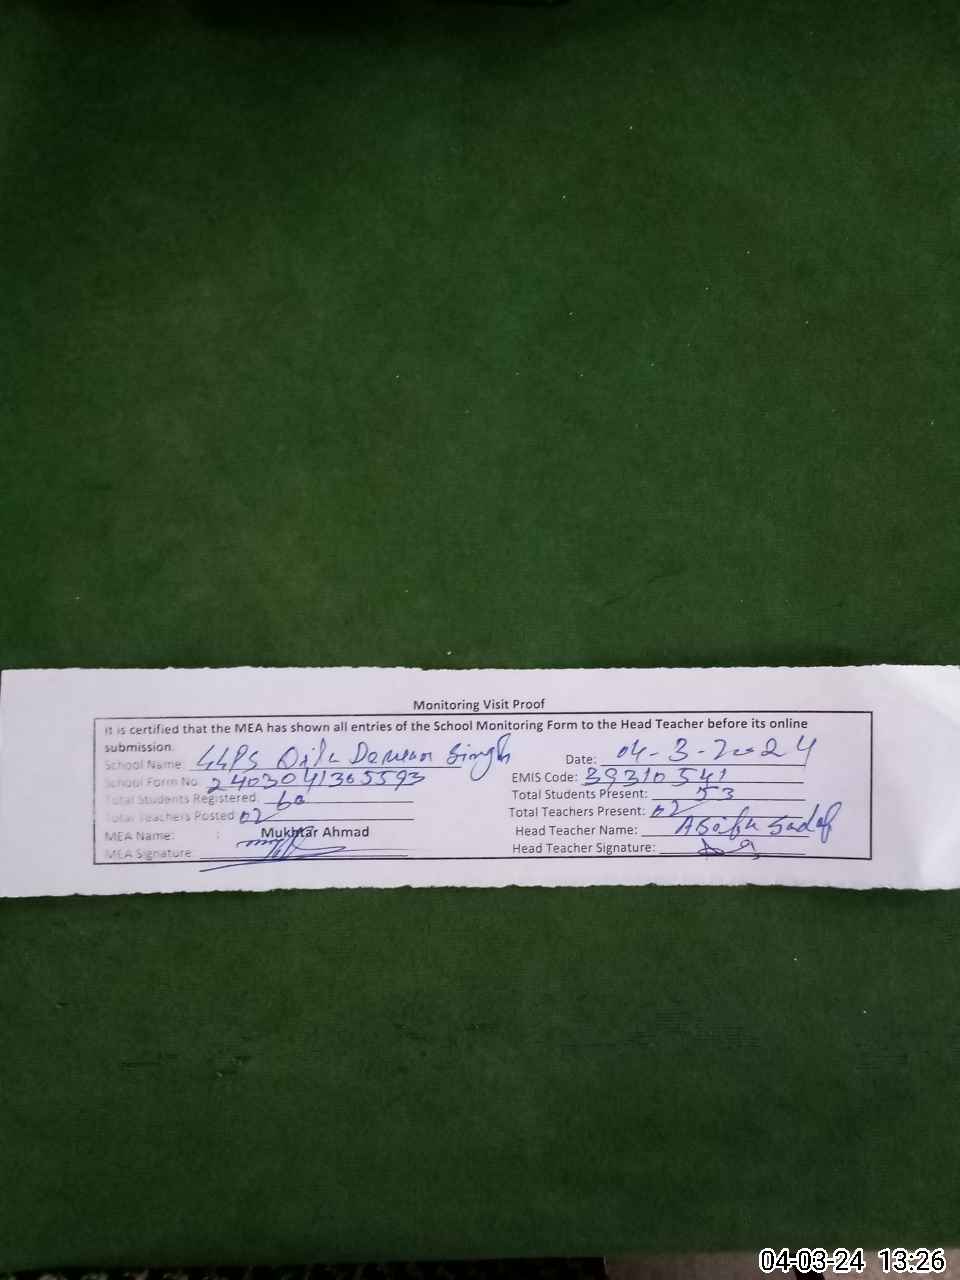 Monitoring Visit Proof
It is certified that the MEA has shown all entries of the School Monitoring Form to the Head Teacher before its online
submission.
School Name: GGPS Singh Date: 04-3-2024
School Form No. 2403041365593 EMIS Code: 39310541
Total Students Registered: 60 Total Students Present: 53
Total Teachers Posted 02 Total Teachers Present: 02
MEA Name: : Mukhtar Ahmad Head Teacher Name: Asifa Sadaf
MEA Signature: Head Teacher Signature:
04-03-24 13:26